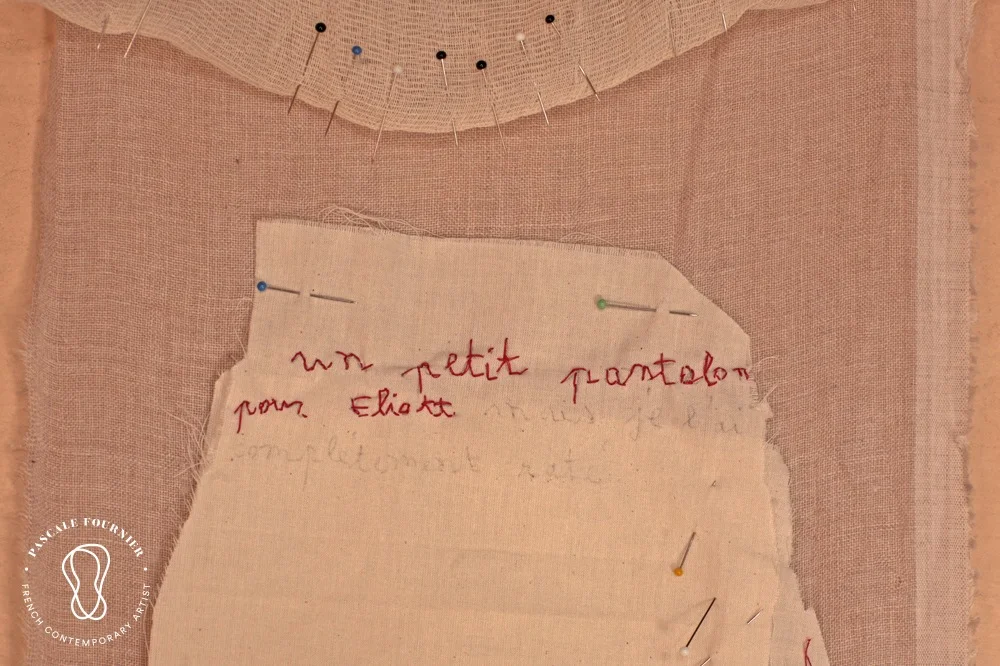 un petit pantalon
pour Eliott mais je l'ai
complètement raté
PASCALE FOURNIER
FRENCH CONTEMPORARY ARTIST